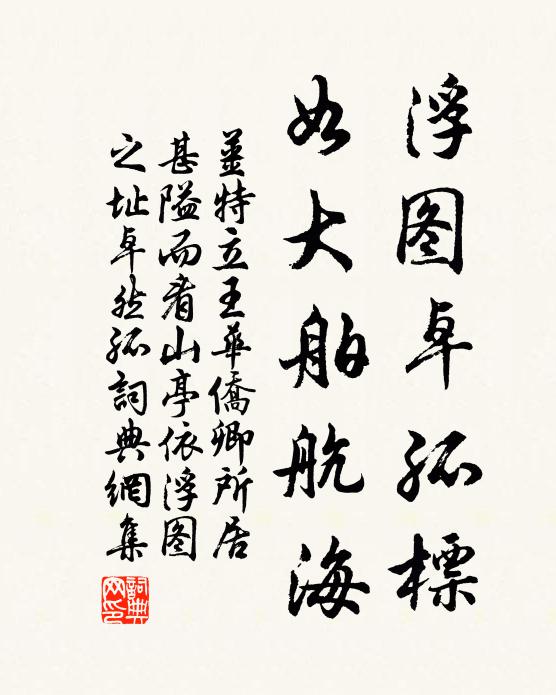 浮图卓孤標
如大舶航海
薑特立王華僑卿所居
甚隘而看山亭依浮图
之址卓然孤詞典網集
詞典